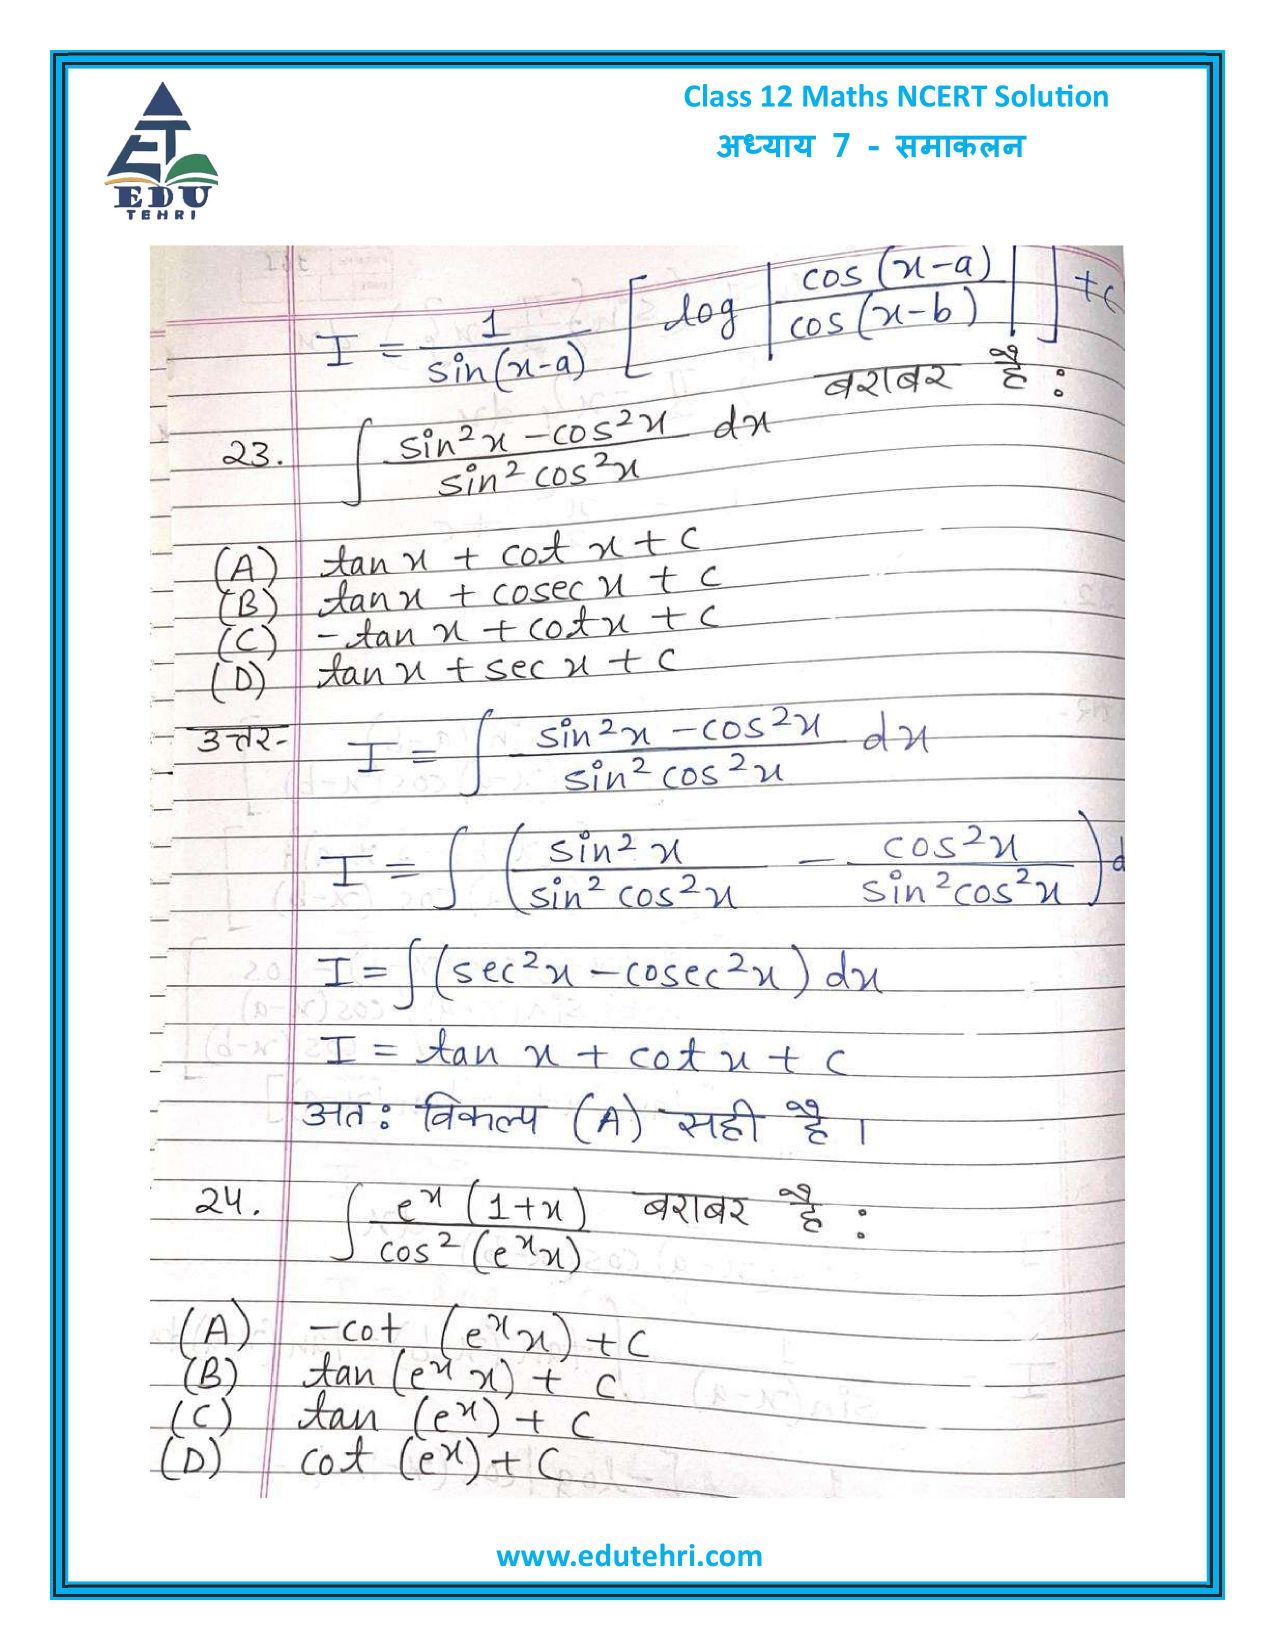 Class 12 Maths NCERT Solution
अध्याय 7 - समाकलन
EDU
TEHRI
I = 1/sin(x-a) [ log | cos(x-a)/cos(x-b) | ] + c
23. ∫ (sin²x - cos²x)/(sin² cos²x) dx बराबर है :
(A) tan x + cot x + c
(B) tan x + cosec x + c
(C) - tan x + cot x + c
(D) tan x + sec x + c
उत्तर- I = ∫ (sin²x - cos²x)/(sin² cos²x) dx
I = ∫ ( sin²x/(sin² cos²x) - cos²x/(sin² cos²x) ) d
I = ∫ (sec²x - cosec²x) dx
I = tan x + cot x + c
अतः विकल्प (A) सही है ।
24. ∫ eˣ(1+x)/cos²(eˣx) बराबर है :
(A) -cot (eˣx) + C
(B) tan (eˣx) + C
(C) tan (eˣ) + C
(D) cot (eˣ) + C
www.edutehri.com